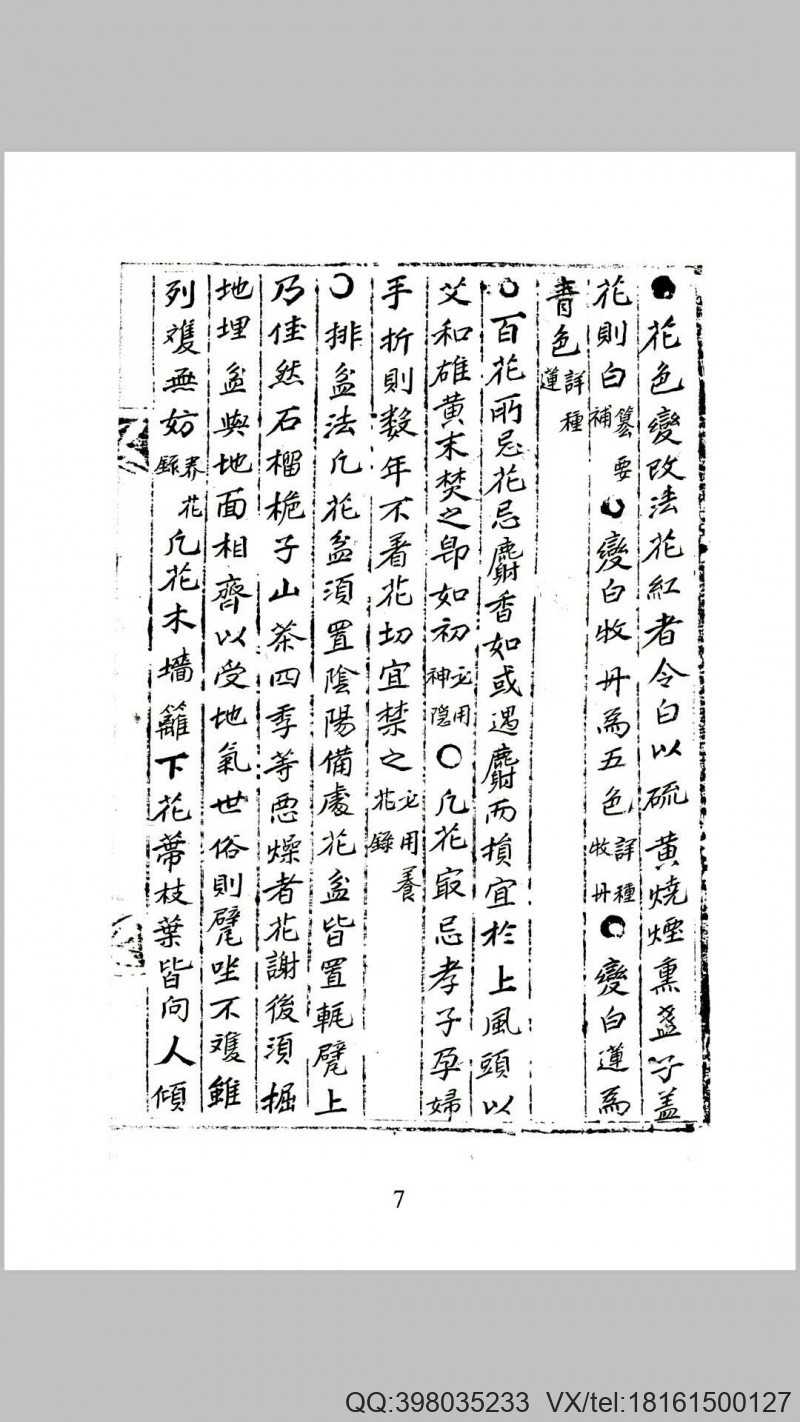 ●花色變改法花紅者令白以硫黄燒煙熏盞子盖
花則白纂要補●變白牧丹爲五色詳種牧丹●變白蓮爲
青色詳種蓮
○百花所忌花忌麝香如或遇麝而損宜於上風頭以
艾和雄黄末焚之即如初必用神隠○凢花㝡忌孝子孕婦
手折則数年不着花切宜禁之必用養花錄
○排盆法凢花盆須置陰陽備處花盆皆置軏甓上
乃佳然石榴梔子山茶四季等悪燥者花謝後須掘
地埋盆與地面相齊以受地氣世俗則甓坐不䨥雖
列䨥無妨養花錄凢花木墻籬下花蒂枝葉皆向人傾
7
QQ:398035233 VX/tel:18161500127